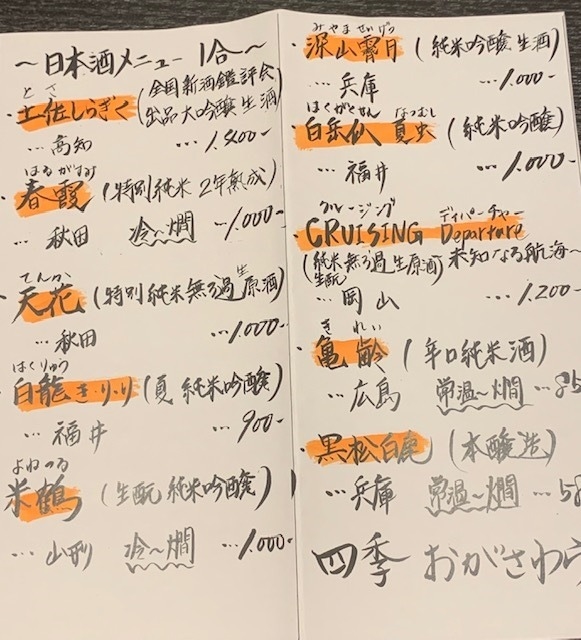 ～日本酒メニュー 1合～
とさ
・土佐しらぎく(全国新酒鑑評会
出品大吟醸生酒)
…高知 …1.400-
はるがすみ
・春霞(特別純米 2年熟成)
…秋田 冷～燗 …1.000-
てんか
・天花(特別純米無ろ過生原酒)
…秋田 …1.000-
はくりゅう
・白龍 きりり(夏 純米吟醸)
…福井 …900-
よねつる
・米鶴(生酛 純米吟醸)
…山形 冷～燗 …1.000-
みやませいげつ
・深山霽月(純米吟醸 生酒)
…兵庫 …1.000-
はくがくせん なつむし
・白岳仙 夏虫(純米吟醸)
…福井 …1.000-
クルージング ディパーチャー
・CRUISING Departure
(純米無ろ過生原酒)未知なる航海～
生酛
…岡山 …1.200-
きれい
・亀齢(辛口純米酒)
…広島 常温～燗 …85
・黒松白鹿(本醸造)
…兵庫 常温～燗 …58
四季 おがさわら